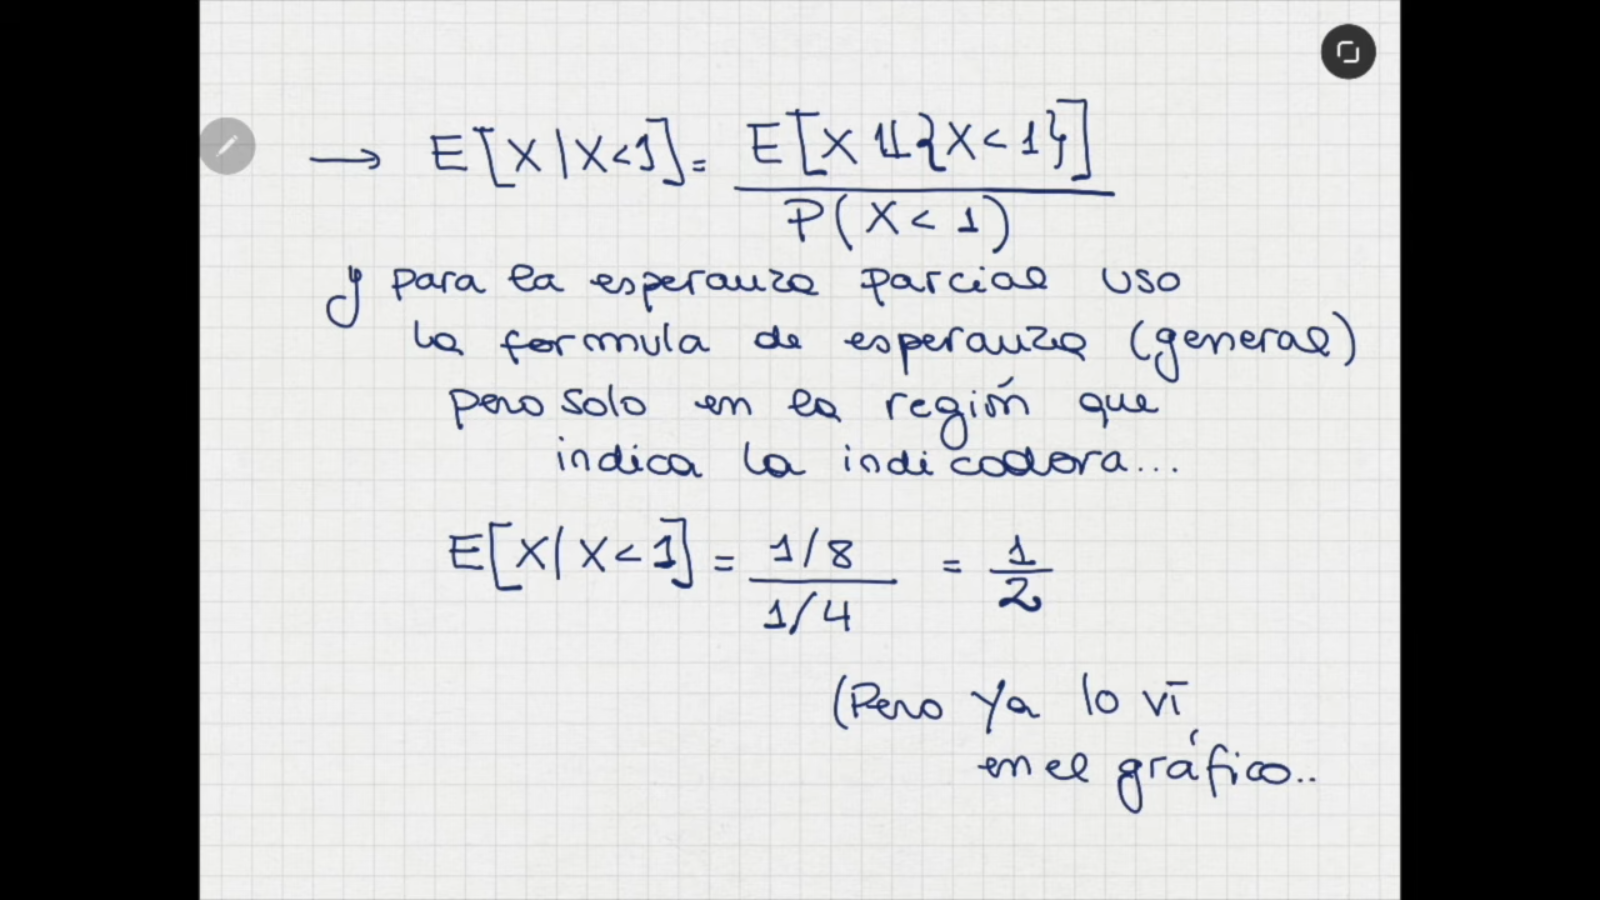 → E[X|X<1] = E[X 𝟙{X<1}] / P(X<1)
y para la esperanza parcial uso
la formula de esperanza (general)
pero solo en la región que
indica la indicadora...
E[X|X<1] = 1/8 / 1/4 = 1/2
(Pero ya lo ví
en el gráfico..